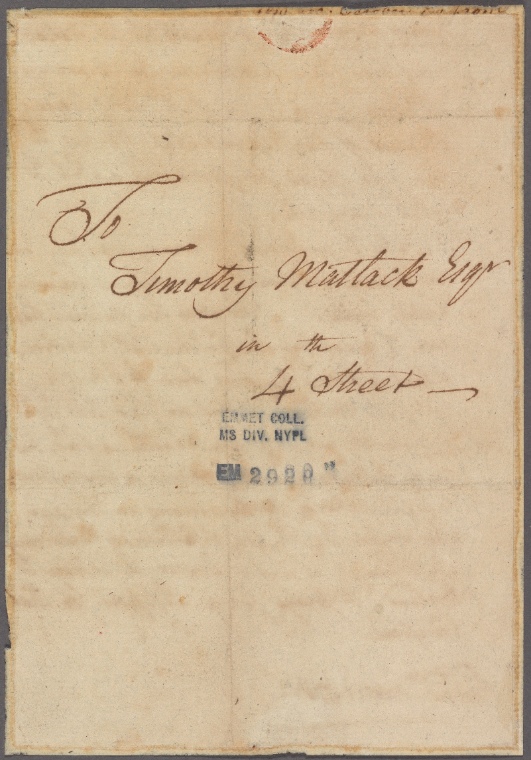 To
Timothy Matlack Esqr
in the
4 Street
EMMET COLL.
MS DIV. NYPL
EM